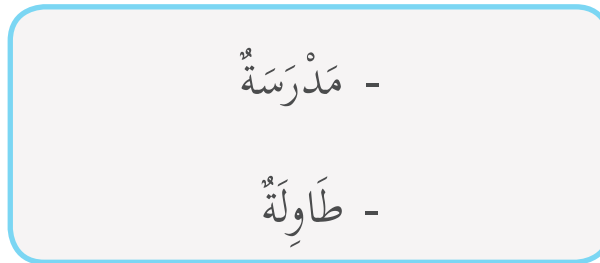 - مَدْرَسَةٌ
- طَاوِلَةٌ